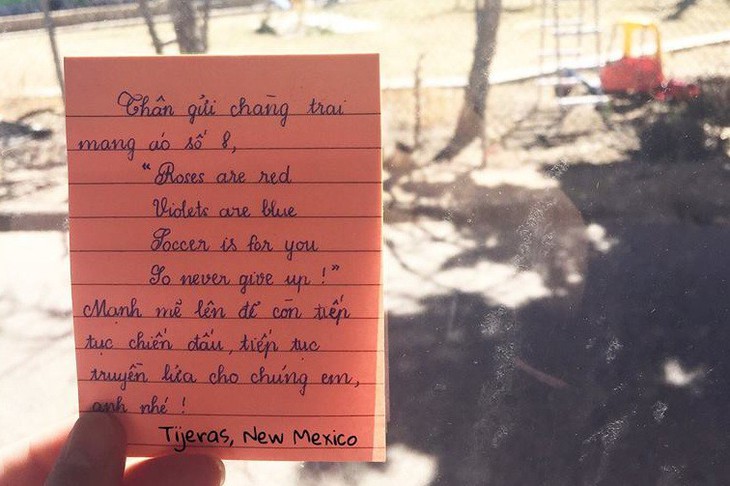 Thân gửi chàng trai
mang áo số 8,
"Roses are red
Violets are blue
Soccer is for you
So never give up !"
Mạnh mẽ lên để còn tiếp
tục chiến đấu, tiếp tục
truyền lửa cho chúng em,
anh nhé !
Tijeras, New Mexico